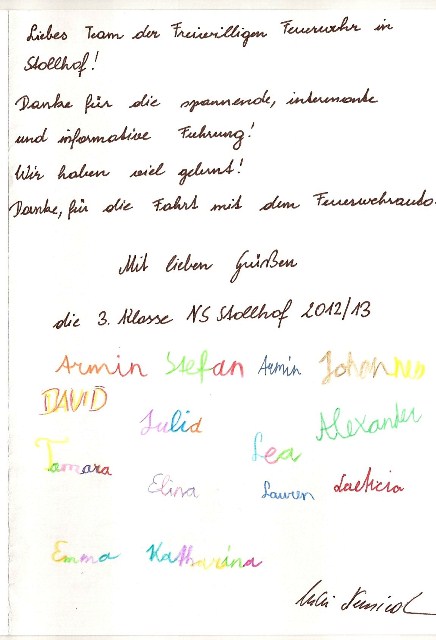 Liebes Team der Freiwilligen Feuerwehr in
Stollhof!
Danke für die spannende, interessante
und informative Führung!
Wir haben viel gelernt!
Danke, für die Fahrt mit dem Feuerwehrauto.
Mit lieben Grüßen
die 3. Klasse NS Stollhof 2012/13
Armin Stefan Armin Johanna
DAVID Julia Alexander
Tamara Lea
Elina Lauren Laeticia
Emma Katharina